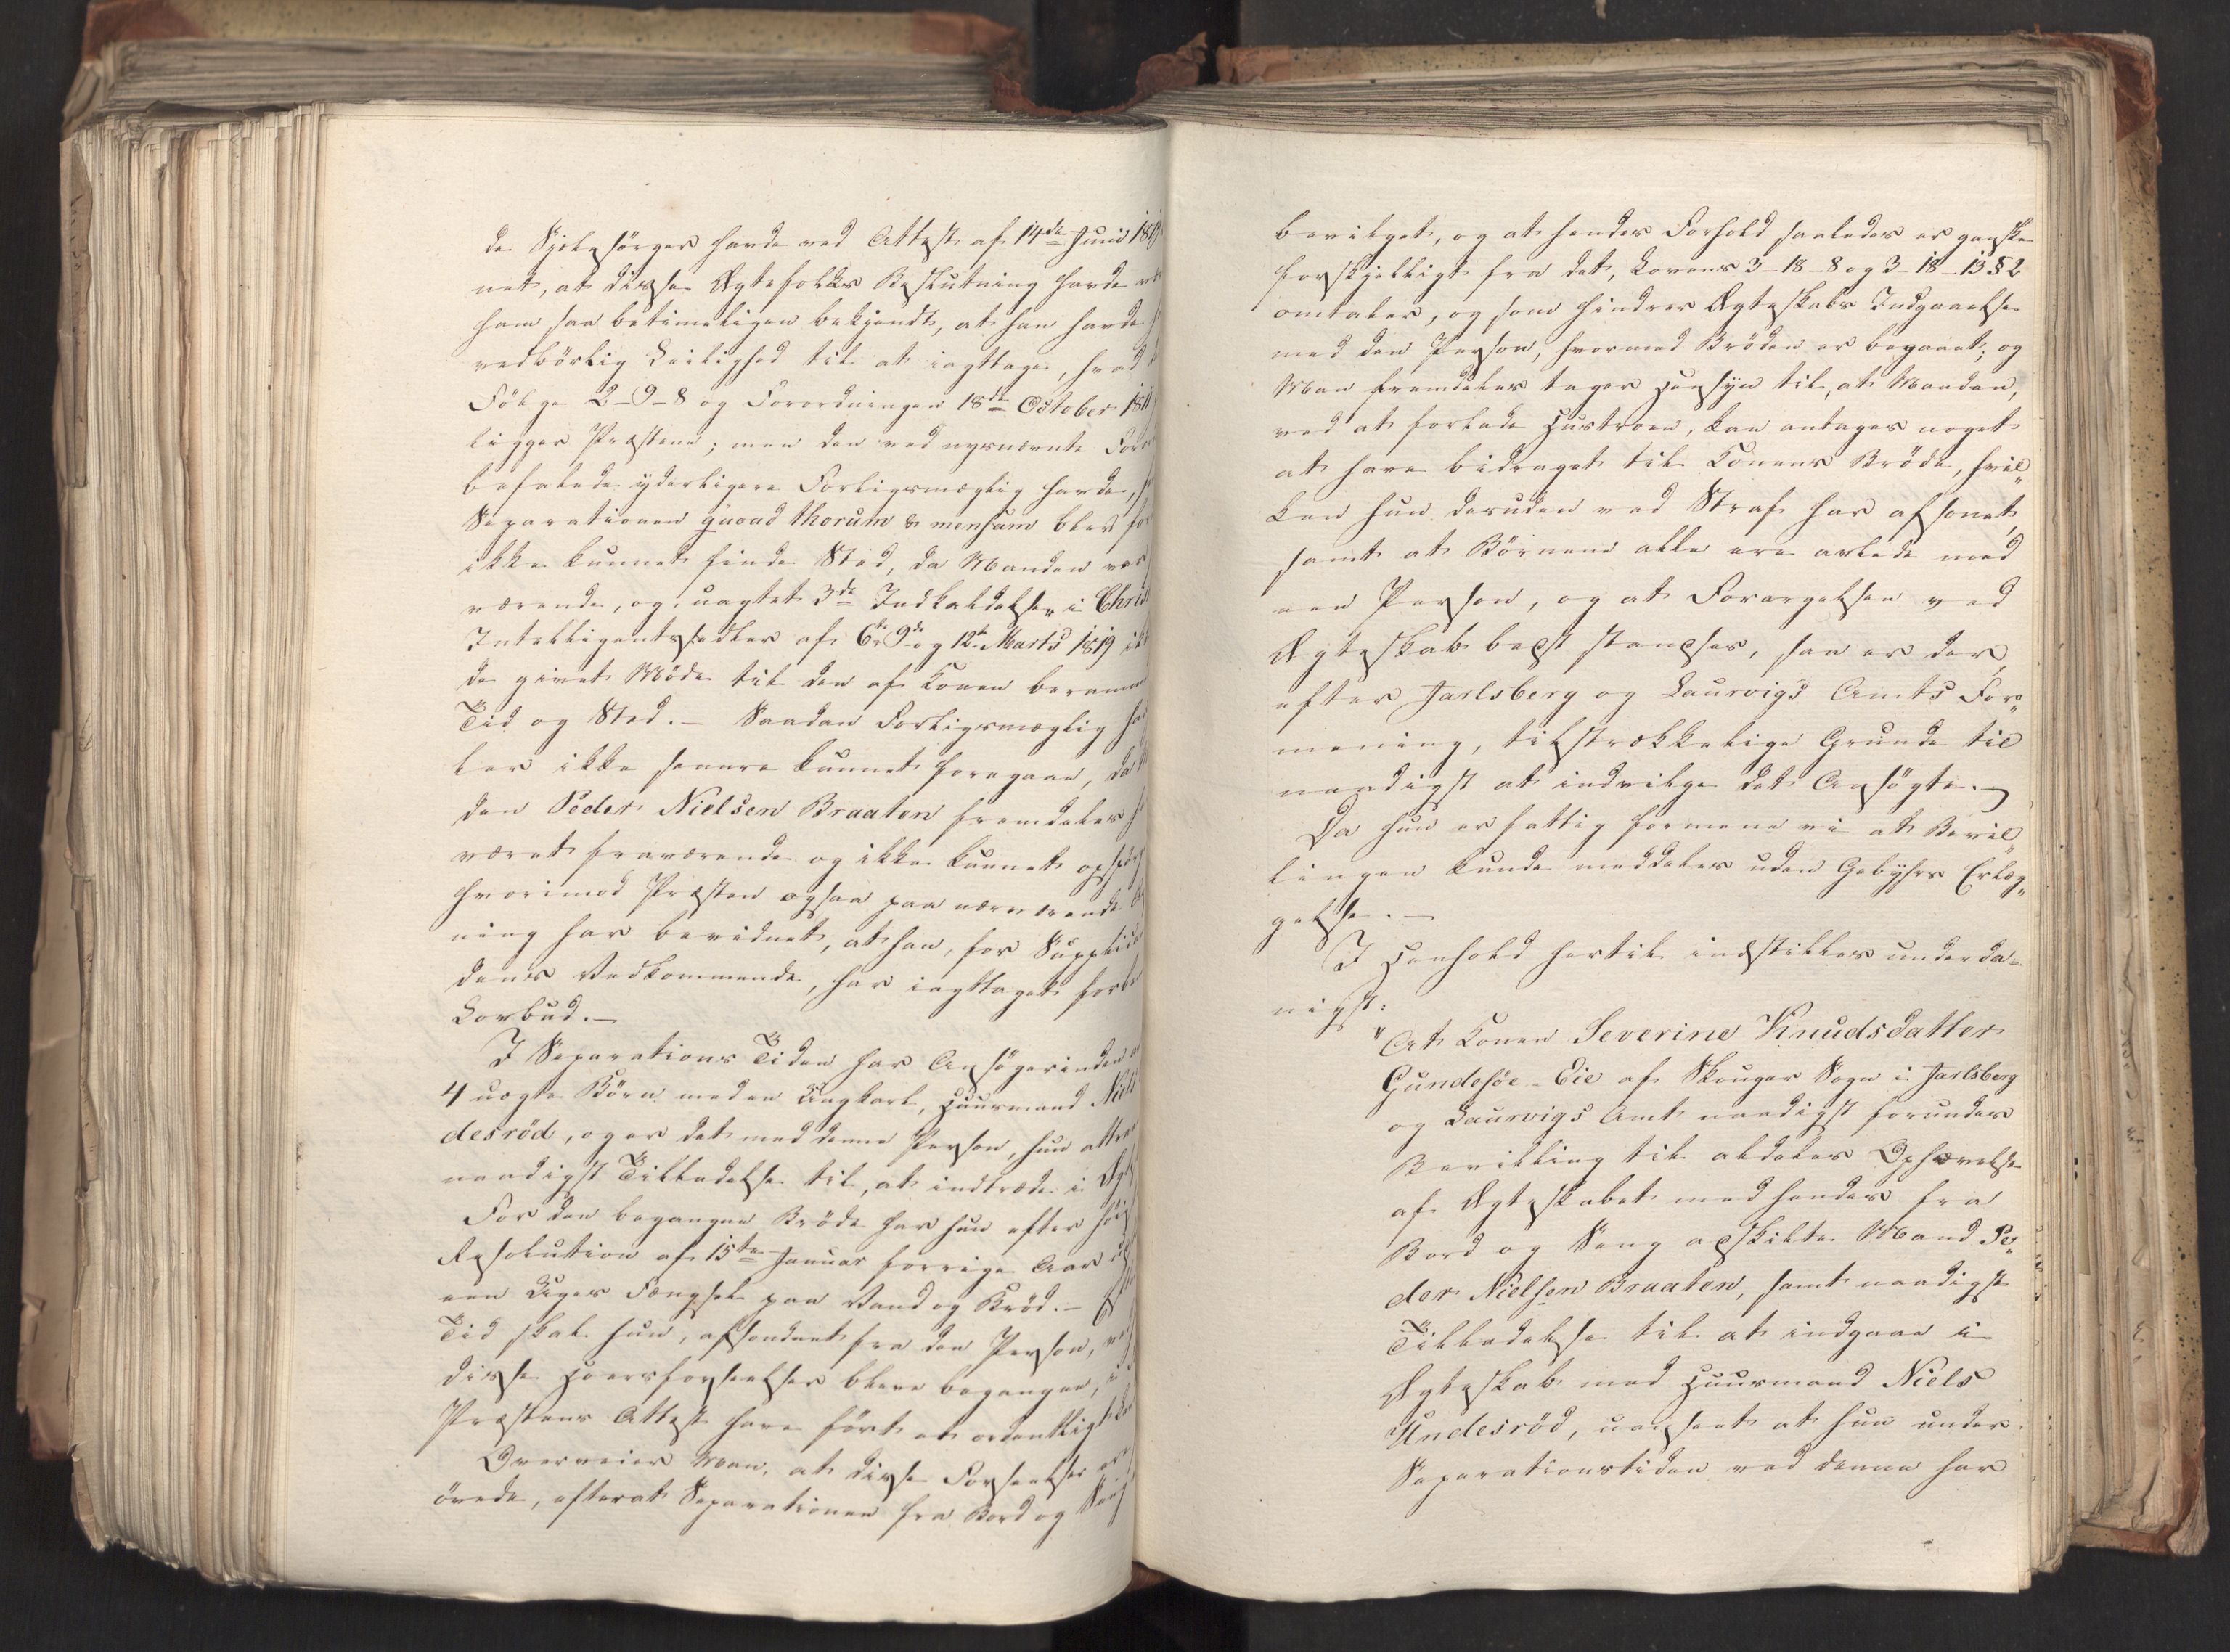 de Sjelesörger havde ved Attest af 14de Junii 1819
net, at disse Ægtefolks Beslutning havde
ham saa betimeligen bekjendt, at han havde
vedbörlig Leilighed til at iagttage, hvad
Fölge 2-9-8 og Forordningen 18de October 1811
ligger Præstene; men den ved nysnævnte For
befalede yderligere Forligsmægling havde,
Separationen quoad thorum & mensam blev for
ikke kunnet finde Sted, da Manden var
værende, og, uagtet 3de Indkaldelser i Christ
Intelligentssedler af 6te 9de og 12te Marts 1819
de givet Möde til den af Konen beramme
Tid og Sted. — Saadan Forligsmægling ha
ler ikke senere kunnet foregaae, da
den Peder Nielsen Braaten fremdeles
været fraværende og ikke kunnet opspör
hvorimod Præsten ogsaa paa nærværende
ning har bevidnet, at han, for Supplicat
dens Vedkommende, har iagttaget
Lovbud. —
I Separations Tiden har Ansögerinden
4 uægte Börn med en Ungkarl, Huusmand Niels
desröd, og er det med denne Person, hun attraa
naadigst Tilladelse til, at indtræde i Ægt
For den begangne Bröde har hun efter höi
Resolution af 15te Januar forrige Aar
een Uges Fængsel paa Vand og Bröd. —
Tid skal hun, afsondret fra den Person,
disse Hoersforseelser bleve begangne,
Præstens Attest have fört et ordentligt
Overveier Man, at disse Forseelser er
övede, efterat Separationen fra Bord og Seng
bevilget, og at hendes Forhold saaledes er ganske
forskjelligt fra det, Lovens 3-18-8 og 3-18-13 § 2
omtaler, og som hindrer Ægteskabs Indgaaelse
med den Person, hvormed Bröden er begaaet; og
Man fremdeles tager Hensyn til, at Manden,
ved at forlade Hustroen, kan antages noget
at have bidraget til Konens Bröde, hvil„
ken hun desuden ved Straf har afsonet,
samt at Börnene alle ere avlede med
een Person, og at Forargelsen ved
Ægteskab bedst standses, saa er der,
efter Jarlsberg og Laurvigs Amts For„
mening, tilstrækkelige Grunde til
naadigst at indvilge det Ansögte. —
Da hun er fattig formene vi at Bevil„
lingen kunde meddeles uden Gebyhrs Erlæg„
gelse. —
I Henhold hertil indstilles underda„
nigst:
"At Konen Severine Knudsdatter
Gundesöe-Eie af Skouger Sogn i Jarlsberg
og Laurvigs Amt naadigst forundes
Bevilling til aldeles Ophævelse
af Ægteskabet med hendes fra
Bord og Seng adskilte Mand Pe„
der Nielsen Braaten, samt naadigst
Tilladelse til at indgaae i
Ægteskab med Huusmand Niels
Undesröd, uanseet at hun under
Separationstiden ved denne har